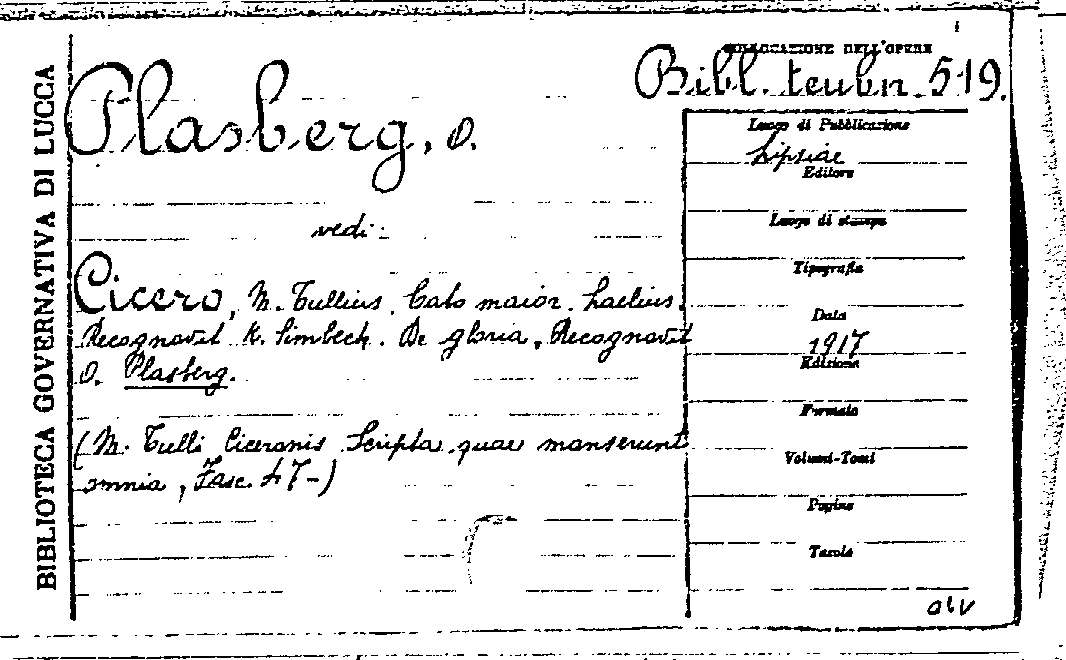 BIBLIOTECA GOVERNATIVA DI LUCCA
COLLOCAZIONE DELL'OPERE
Bibl. teubn. 519.
Plasberg, O.
vedi:
Cicero, M. Tullius. Cato maior. Laelius.
Recognovit K. Simbeck. De gloria, Recognovit
O. Plasberg.
(M. Tulli Ciceronis Scripta quae manserunt
omnia, Fasc. 47-)
Luogo di Pubblicazione
Lipsiae
Editore
Luogo di stampa
Tipografia
Data
1917
Edizione
Formato
Volumi-Tomi
Pagine
Tavole